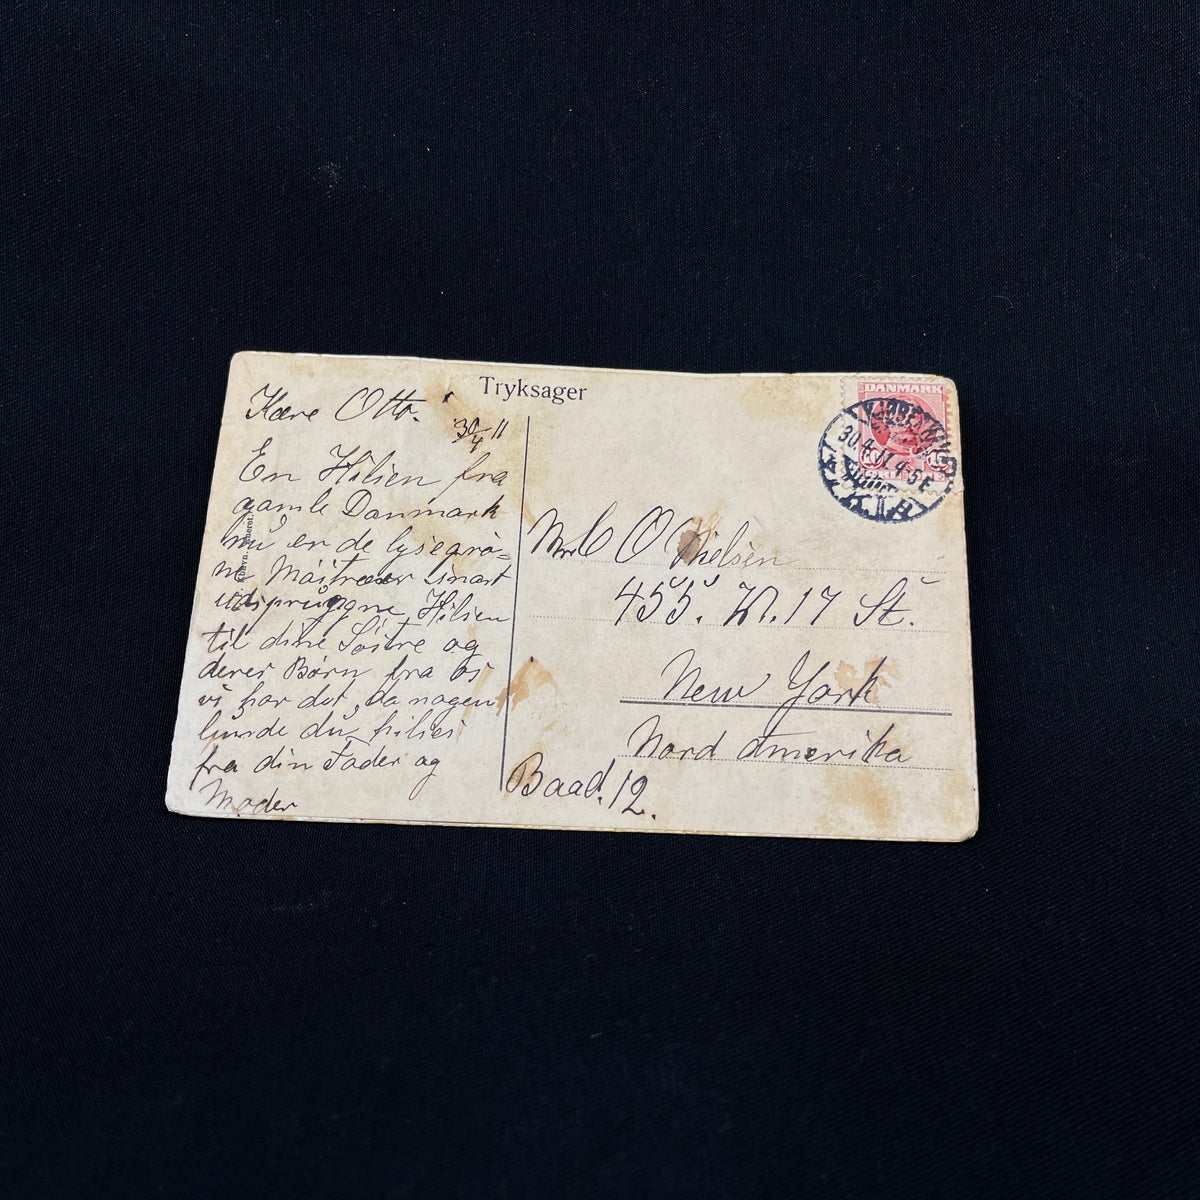 Tryksager
Kære Otto.
30/4 11
En Hilsen fra
gamle Danmark
nu er de lysegrø=
ne snart
udsprungne, Hilsen
til dine Søstre og
deres Børn fra os
vi har det, da nogen
lunde du hilses
fra din Fader og
Moder
DANMARK
KJØBENHAVN
30.4.11.4-5E
O Nielsen
455. W. 17 St.
New York
Nord Amerika
Baad. 12.